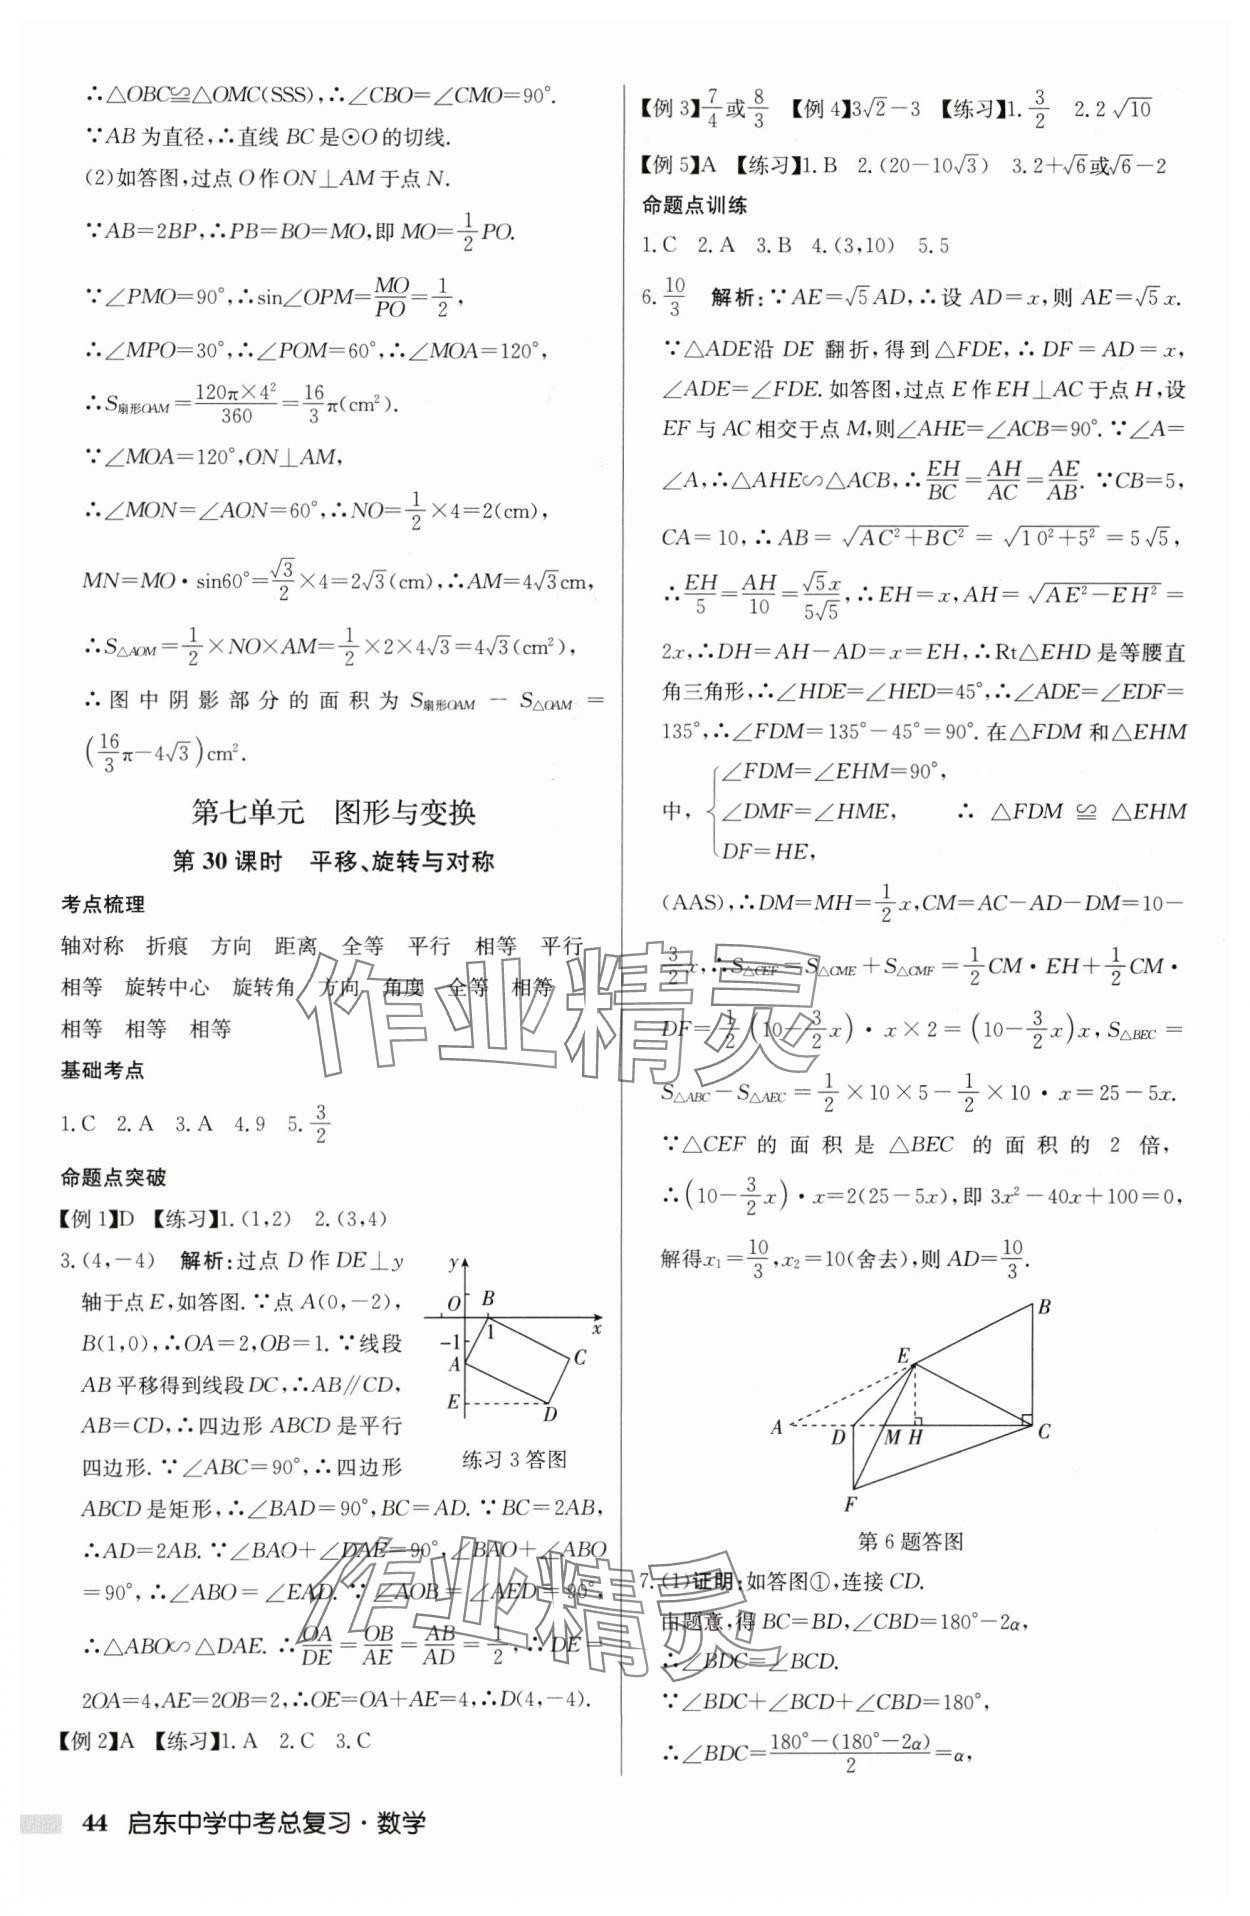 ∴△OBC≌△OMC(SSS),∴∠CBO=∠CMO=90°.
∵AB为直径,∴直线BC是⊙O的切线.
(2)如答图,过点O作ON⊥AM于点N.
∵AB=2BP,∴PB=BO=MO,即MO=1/2PO.
∵∠PMO=90°,∴sin∠OPM=MO/PO=1/2,
∴∠MPO=30°,∴∠POM=60°,∴∠MOA=120°,
∴S扇形OAM=120π×4²/360=16/3π(cm²).
∵∠MOA=120°,ON⊥AM,
∴∠MON=∠AON=60°,∴NO=1/2×4=2(cm),
MN=MO·sin60°=√3/2×4=2√3(cm),∴AM=4√3cm,
∴S△AOM=1/2×NO×AM=1/2×2×4√3=4√3(cm²),
∴图中阴影部分的面积为S扇形OAM-S△OAM=
(16/3π-4√3)cm².
第七单元 图形与变换
第30课时 平移、旋转与对称
考点梳理
轴对称 折痕 方向 距离 全等 平行 相等 平行
相等 旋转中心 旋转角 方向 角度 全等 相等
相等 相等 相等
基础考点
1.C 2.A 3.A 4.9 5.3/2
命题点突破
【例1】D 【练习】1.(1,2) 2.(3,4)
3.(4,-4) 解析:过点D作DE⊥y
轴于点E,如答图.∵点A(0,-2),
B(1,0),∴OA=2,OB=1.∵线段
AB平移得到线段DC,∴AB∥CD,
AB=CD,∴四边形ABCD是平行
四边形.∵∠ABC=90°,∴四边形
y O B 1 x -1 A C E D
练习3答图
ABCD是矩形,∴∠BAD=90°,BC=AD.∵BC=2AB,
∴AD=2AB.∵∠BAO+∠DAE=90°,∠BAO+∠ABO
=90°,∴∠ABO=∠EAD.∵∠AOB=∠AED=90°,
∴△ABO∽△DAE.∴OA/DE=OB/AE=AB/AD=1/2,∴DE=
2OA=4,AE=2OB=2,∴OE=OA+AE=4,∴D(4,-4).
【例2】A 【练习】1.A 2.C 3.C
【例3】7/4或8/3 【例4】3√2-3 【练习】1.3/2 2.2√10
【例5】A 【练习】1.B 2.(20-10√3) 3.2+√6或√6-2
命题点训练
1.C 2.A 3.B 4.(3,10) 5.5
6.10/3 解析:∵AE=√5AD,∴设AD=x,则AE=√5x.
∵△ADE沿DE翻折,得到△FDE,∴DF=AD=x,
∠ADE=∠FDE.如答图,过点E作EH⊥AC于点H,设
EF与AC相交于点M,则∠AHE=∠ACB=90°.∵∠A=
∠A,∴△AHE∽△ACB,∴EH/BC=AH/AC=AE/AB.∵CB=5,
CA=10,∴AB=√(AC²+BC²)=√(10²+5²)=5√5,
∴EH/5=AH/10=√5x/5√5,∴EH=x,AH=√(AE²-EH²)=
2x,∴DH=AH-AD=x=EH,∴Rt△EHD是等腰直
角三角形,∴∠HDE=∠HED=45°,∴∠ADE=∠EDF=
135°,∴∠FDM=135°-45°=90°.在△FDM和△EHM
中,{∠FDM=∠EHM=90°,
∠DMF=∠HME, ∴△FDM≌△EHM
DF=HE,
(AAS),∴DM=MH=1/2x,CM=AC-AD-DM=10-
3/2x,∴S△CEF=S△CME+S△CMF=1/2CM·EH+1/2CM·
DF=1/2(10-3/2x)·x×2=(10-3/2x)x,S△BEC=
S△ABC-S△AEC=1/2×10×5-1/2×10·x=25-5x.
∵△CEF的面积是△BEC的面积的2倍,
∴(10-3/2x)·x=2(25-5x),即3x²-40x+100=0,
解得x₁=10/3,x₂=10(舍去),则AD=10/3.
B E A D M H C F
第6题答图
7.(1)证明:如答图①,连接CD.
由题意,得BC=BD,∠CBD=180°-2α,
∴∠BDC=∠BCD.
∵∠BDC+∠BCD+∠CBD=180°,
∴∠BDC=180°-(180°-2α)/2=α,
44 启东中学中考总复习·数学
作业精灵
作业精灵